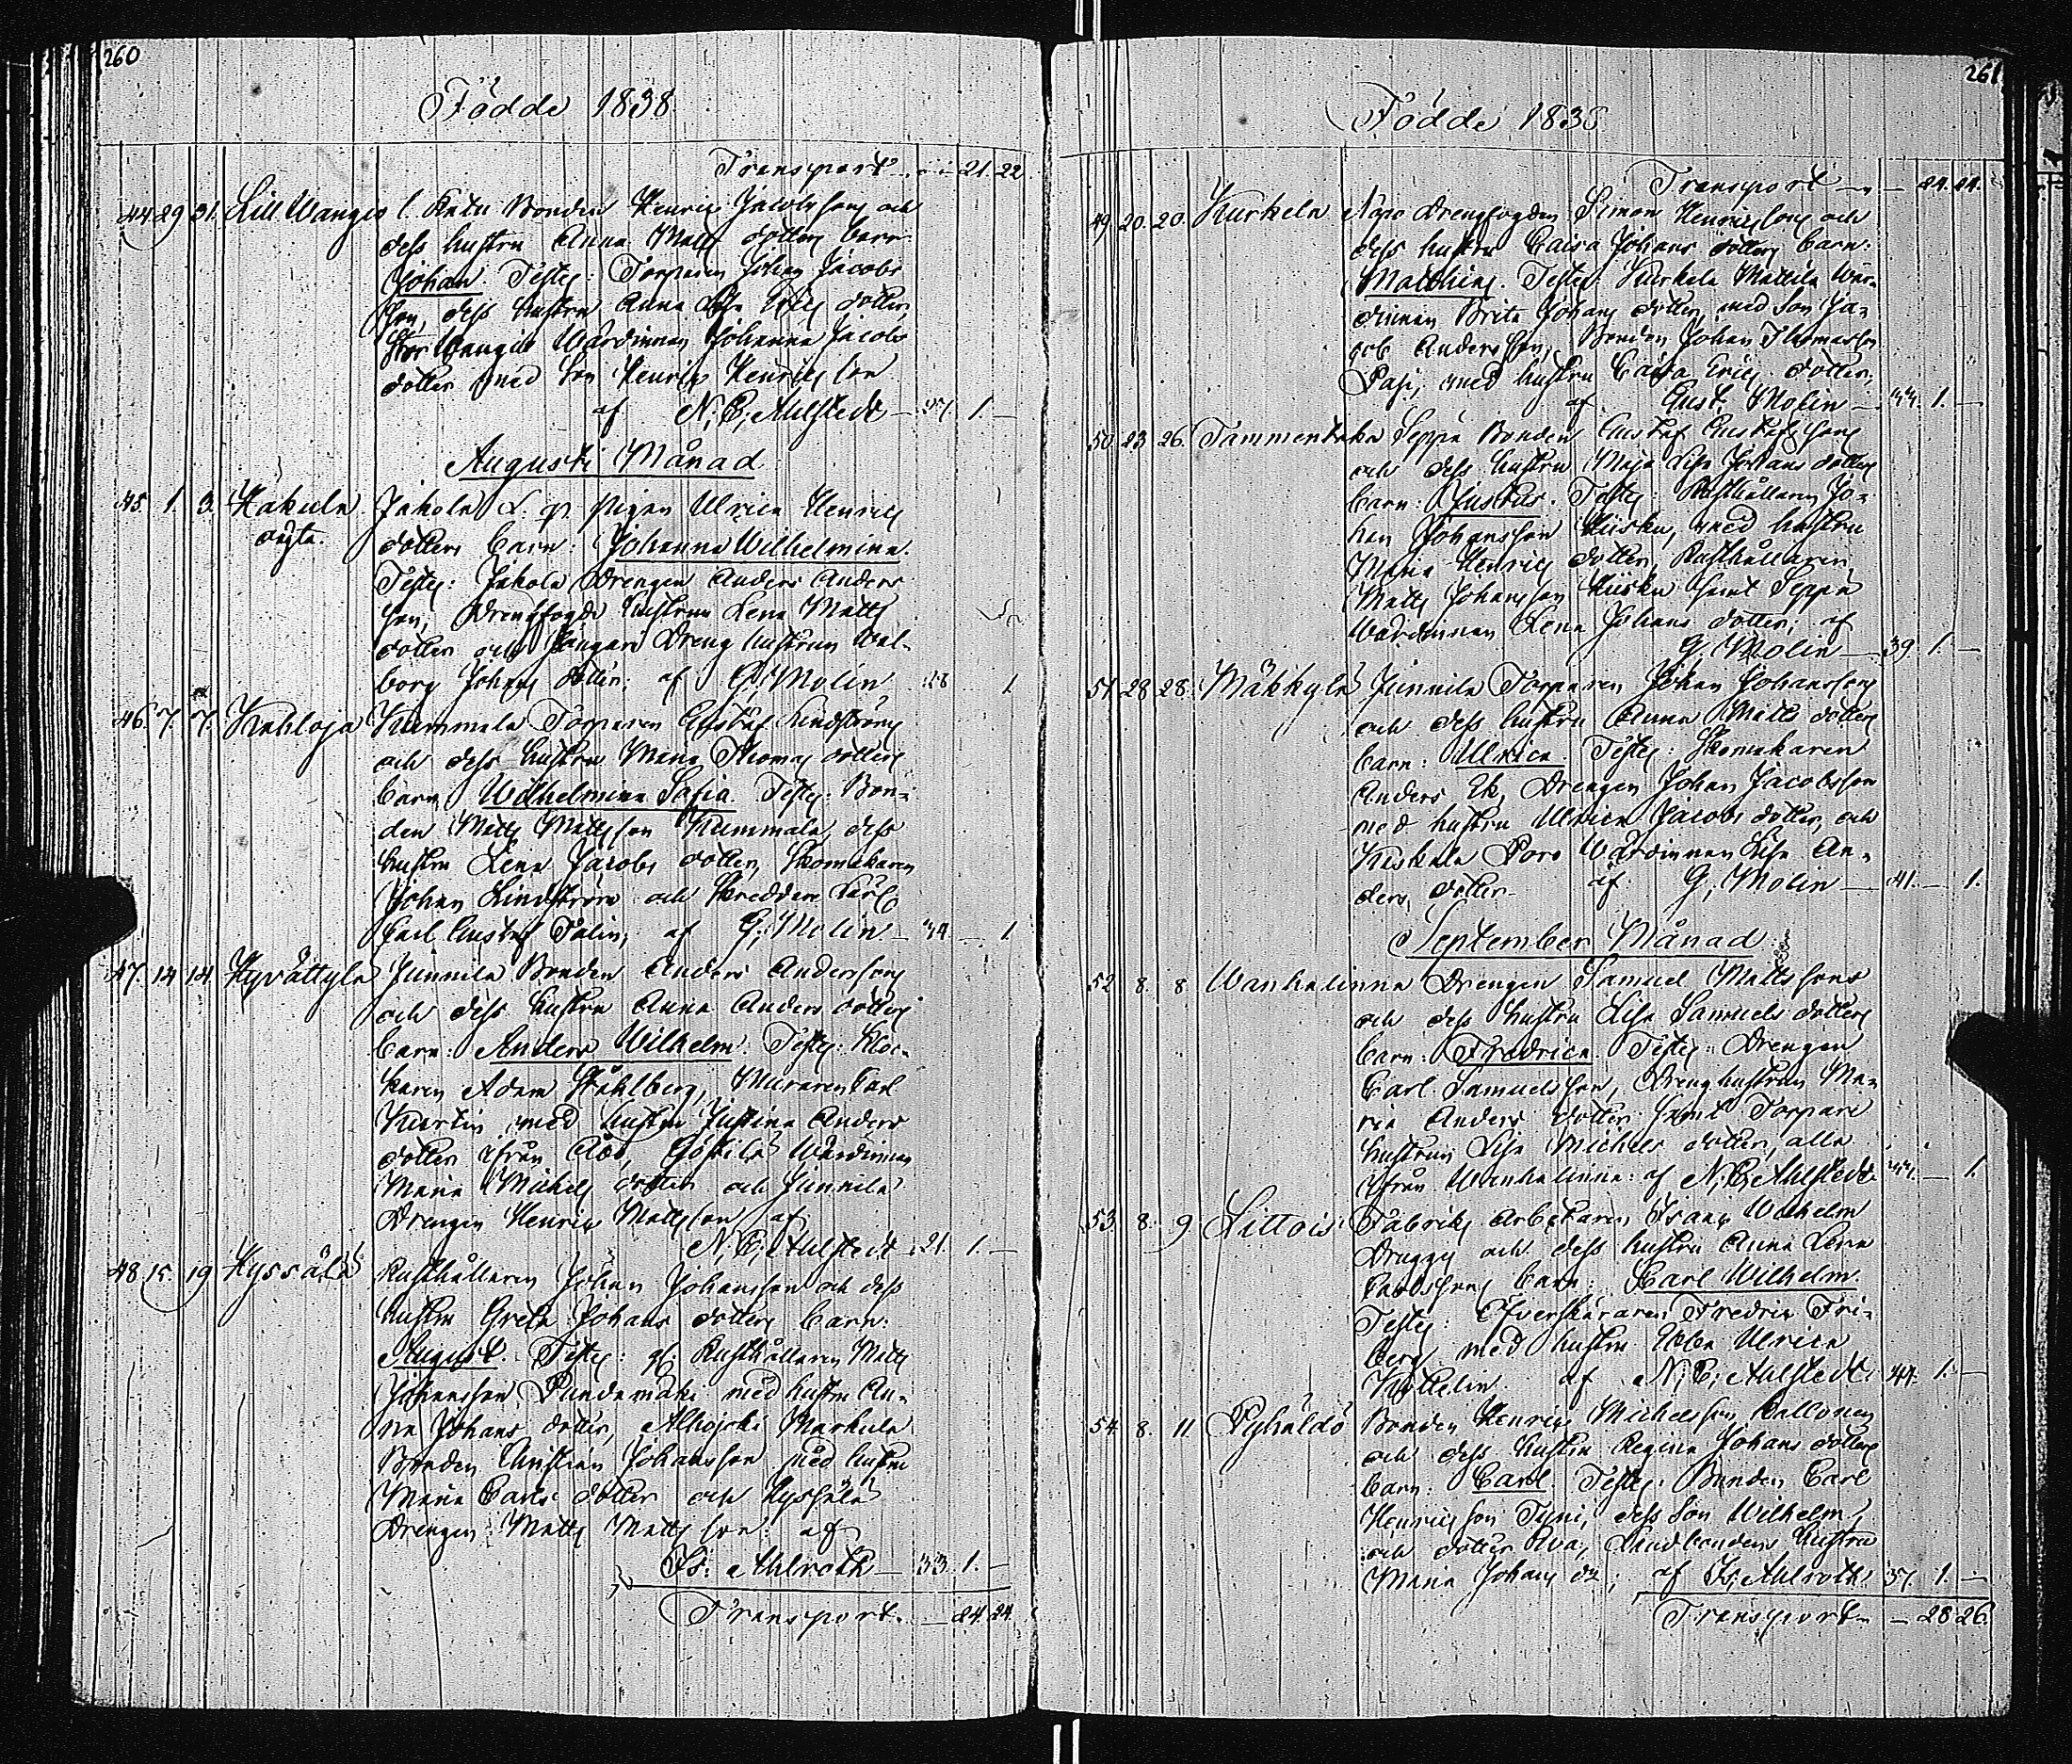 260
Födde 1838.
Transport 21. 22
44. 29 31. Lill Wanga l. Katu Bonden Henric Jacobsons och
dess hustru Anna Matts dotters barn
Johan. Testes: Torparen Johan Jacobs
son, dess hustru Anna Lisa dotter,
Stor Wanga Wärdinnan Johanna Jacobs
dotter med son Henric Henricsson
af N. E. Ahlstedt 1. —
Augusti Månad
45. 1. 3. Kakula Jakola pigan Ulrica Henrics
oägta. dotters barn: Johanna Wilhelmina.
Testes: Jakola Drengen Anders Anders
son, Drengfogde hustrun Lena Matts
dotter och Dreng hustrun Wal-
borg Johans dotter; af G. Molin 28 1.
46. 7. 7. Kahloja Kummala Torparen Gustaf Lindströms
och dess hustru Maria Thomas dotters
barn Wilhelmina Sofia. Testes: Bon-
den Matts Mattsson Kummala, dess
hustru Lena Jacobs dotter, Skomakaren
Johan Lindström och Skreddare
Carl Gustaf Palin; af G. Molin — 34 — 1.
47. 14 14. Hyvättylä Junnila Bonden Anders Andersons
och dess hustru Anna Anders dotters
barn: Anders Wilhelm. Testes: Kloc-
karen Adam Ståhlberg, Muraren Carl
Kurtin med hustru Justina Anders
dotter ifrån Åbo, Wärdinnan
Maria Michels dotter och Junnila
Drengen Henric Mattsson af
N. E. Ahlstedt 21. 1. —
48. 15. 19 Hyssälä Rusthållaren Johan Johansson och dess
hustru Greta Johans dotters barn:
August. Testes: Rusthållaren Matts
Johansson med hustru An-
na Johans dotter, Alhojoki Markula
Bonden Christian Johansson med hustru
Maria Carls dotter och Hyssälä
Drengen Matts Mattsson af
Is. Ahlroth — 33 1. —
Transport. — 24. 24.
261
Födde 1838
Transport — — 24. 24.
49. 20. 20. Kurkela Nopo Drengfogden Simon Henricsons och
dess hustru Caisa Johans dotters barn:
Matthias. Testes: Kurkela Mattila Wär-
dinnan Brita Johans dotter, med son Ja-
cob Andersson, Bonden Johan Thomasson
Pasi, med hustru Caisa Erics dotter,
af Gust. Molin — 1. —
50. 23 26. Tammentaka Seppä Bonden Gustaf Gustafsons
och dess hustru Maja Lisa Johans dotters
barn: Justus. Testes: Rusthållaren Jo-
han Johansson Kiisku, med hustru
Maria Henrics dotter, Rusthållaren
Matts Johansson Kiisku samt Seppä
Wärdinnan Lena Johans dotter; af
G. Molin — 39. 1. —
51. 28 28. Mäkkylä Junnila Torparen Johan Johanssons
och dess hustru Anna Matts dotters
barn: Ulrica Testes: Skomakaren
Anders Ek, Drengen Johan Jacobsson
med hustru Ulrica Jacobs dotter, och
Kiskala Poro Wärdinnan Lisa An-
ders dotter af G. Molin — 41. — 1.
September Månad
52 8. 8. Wanhalinna Drengen Samuel Mattssons
och dess hustru Lisa Samuels dotters
barn: Fredrica Testes: Drengen
Carl Samuelsson, Drenghustrun Ma-
ria Anders dotter samt Torpare
hustrun Lisa Michels dotter, alla
ifrån Wanhalinna: af N. E. Ahlstedt — 1.
53. 8. 9 Littois Fabriks Arbetaren Frans Wilhelm
Druggs och dess hustru Anna Lena
barn: Carl Wilhelm.
Testes: Öfverskäraren Fredric Fri-
berg med hustru Ebba Ulrica
af N. E. Ahlstedt. 44. 1. —
54. 8. 11 Pyhäldö Bonden Henric Michelsson
och dess hustru Regina Johans dotters
barn: Carl Testes: Bonden Carl
Henricsson Tyni, dess son Wilhelm,
och dotter Eva, Landbondens hustru
Maria Johans dr; af Is. Ahlroth. 37. 1. —
Transport — 28 26.